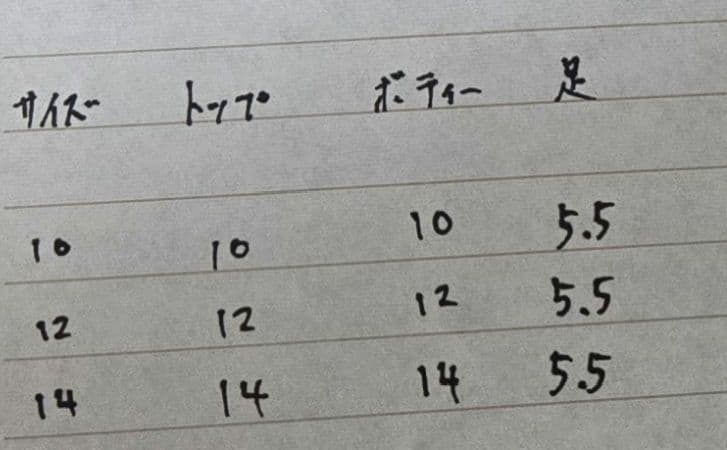 サイズ トップ ボディー 足
10 10 10 5.5
12 12 12 5.5
14 14 14 5.5